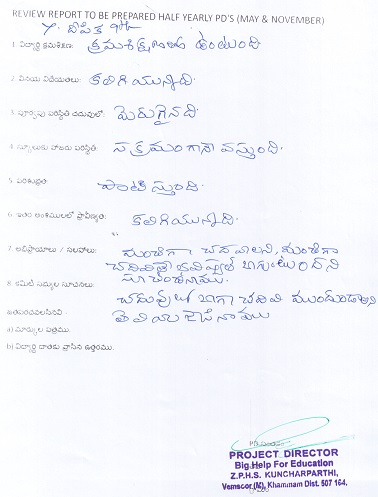 REVIEW REPORT TO BE PREPARED HALF YEARLY PD'S (MAY & NOVEMBER)
Y. దీపిక 9th
1. విద్యార్థి క్రమశిక్షణ: క్రమశిక్షణగా ఉంటుంది
2. వినయ విధేయతలు: కలిగి యున్నది.
3. పూర్వపు పరిస్థితి చదువులో: మెరుగైనది.
4. స్కూలుకు హాజరు పరిస్థితి: సక్రమంగానే వస్తుంది.
5. పరిశుభ్రత: పాటిస్తుంది.
6. ఇతర అంశములలో ప్రావీణ్యత: కలిగియున్నది.
7. అభిప్రాయాలు / సలహాలు: మంచిగా చదవాలని, మంచిగా
చదివితే భవిష్యత్ బాగుంటుందని
సూచించినాము.
8. కమిటీ సభ్యుల సూచనలు: చదువులో బాగా చదివి ముందుండాలని
తెలియజేసినాము
జతపరచవలసినవి -
a) మార్కుల పత్రము.
b) విద్యార్థి దాతకు వ్రాసిన ఉత్తరము.
PROJECT DIRECTOR
Big Help For Education
Z.P.H.S. KUNCHARPARTHI,
Vemsoor (M), Khammam Dist. 507 164.